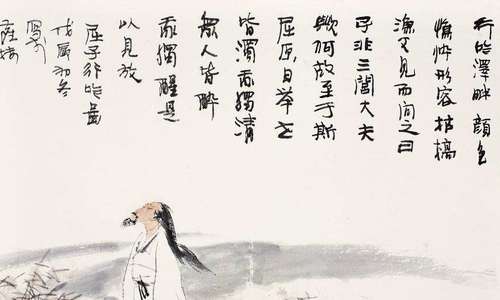 行吟澤畔顏色
憔悴形容枯槁
漁父見而问之曰
子非三閭大夫
歟何故至于斯
屈原曰舉世
皆濁我獨清
眾人皆醉
我獨醒是
以見放
屈子行吟啚
戊辰初冬